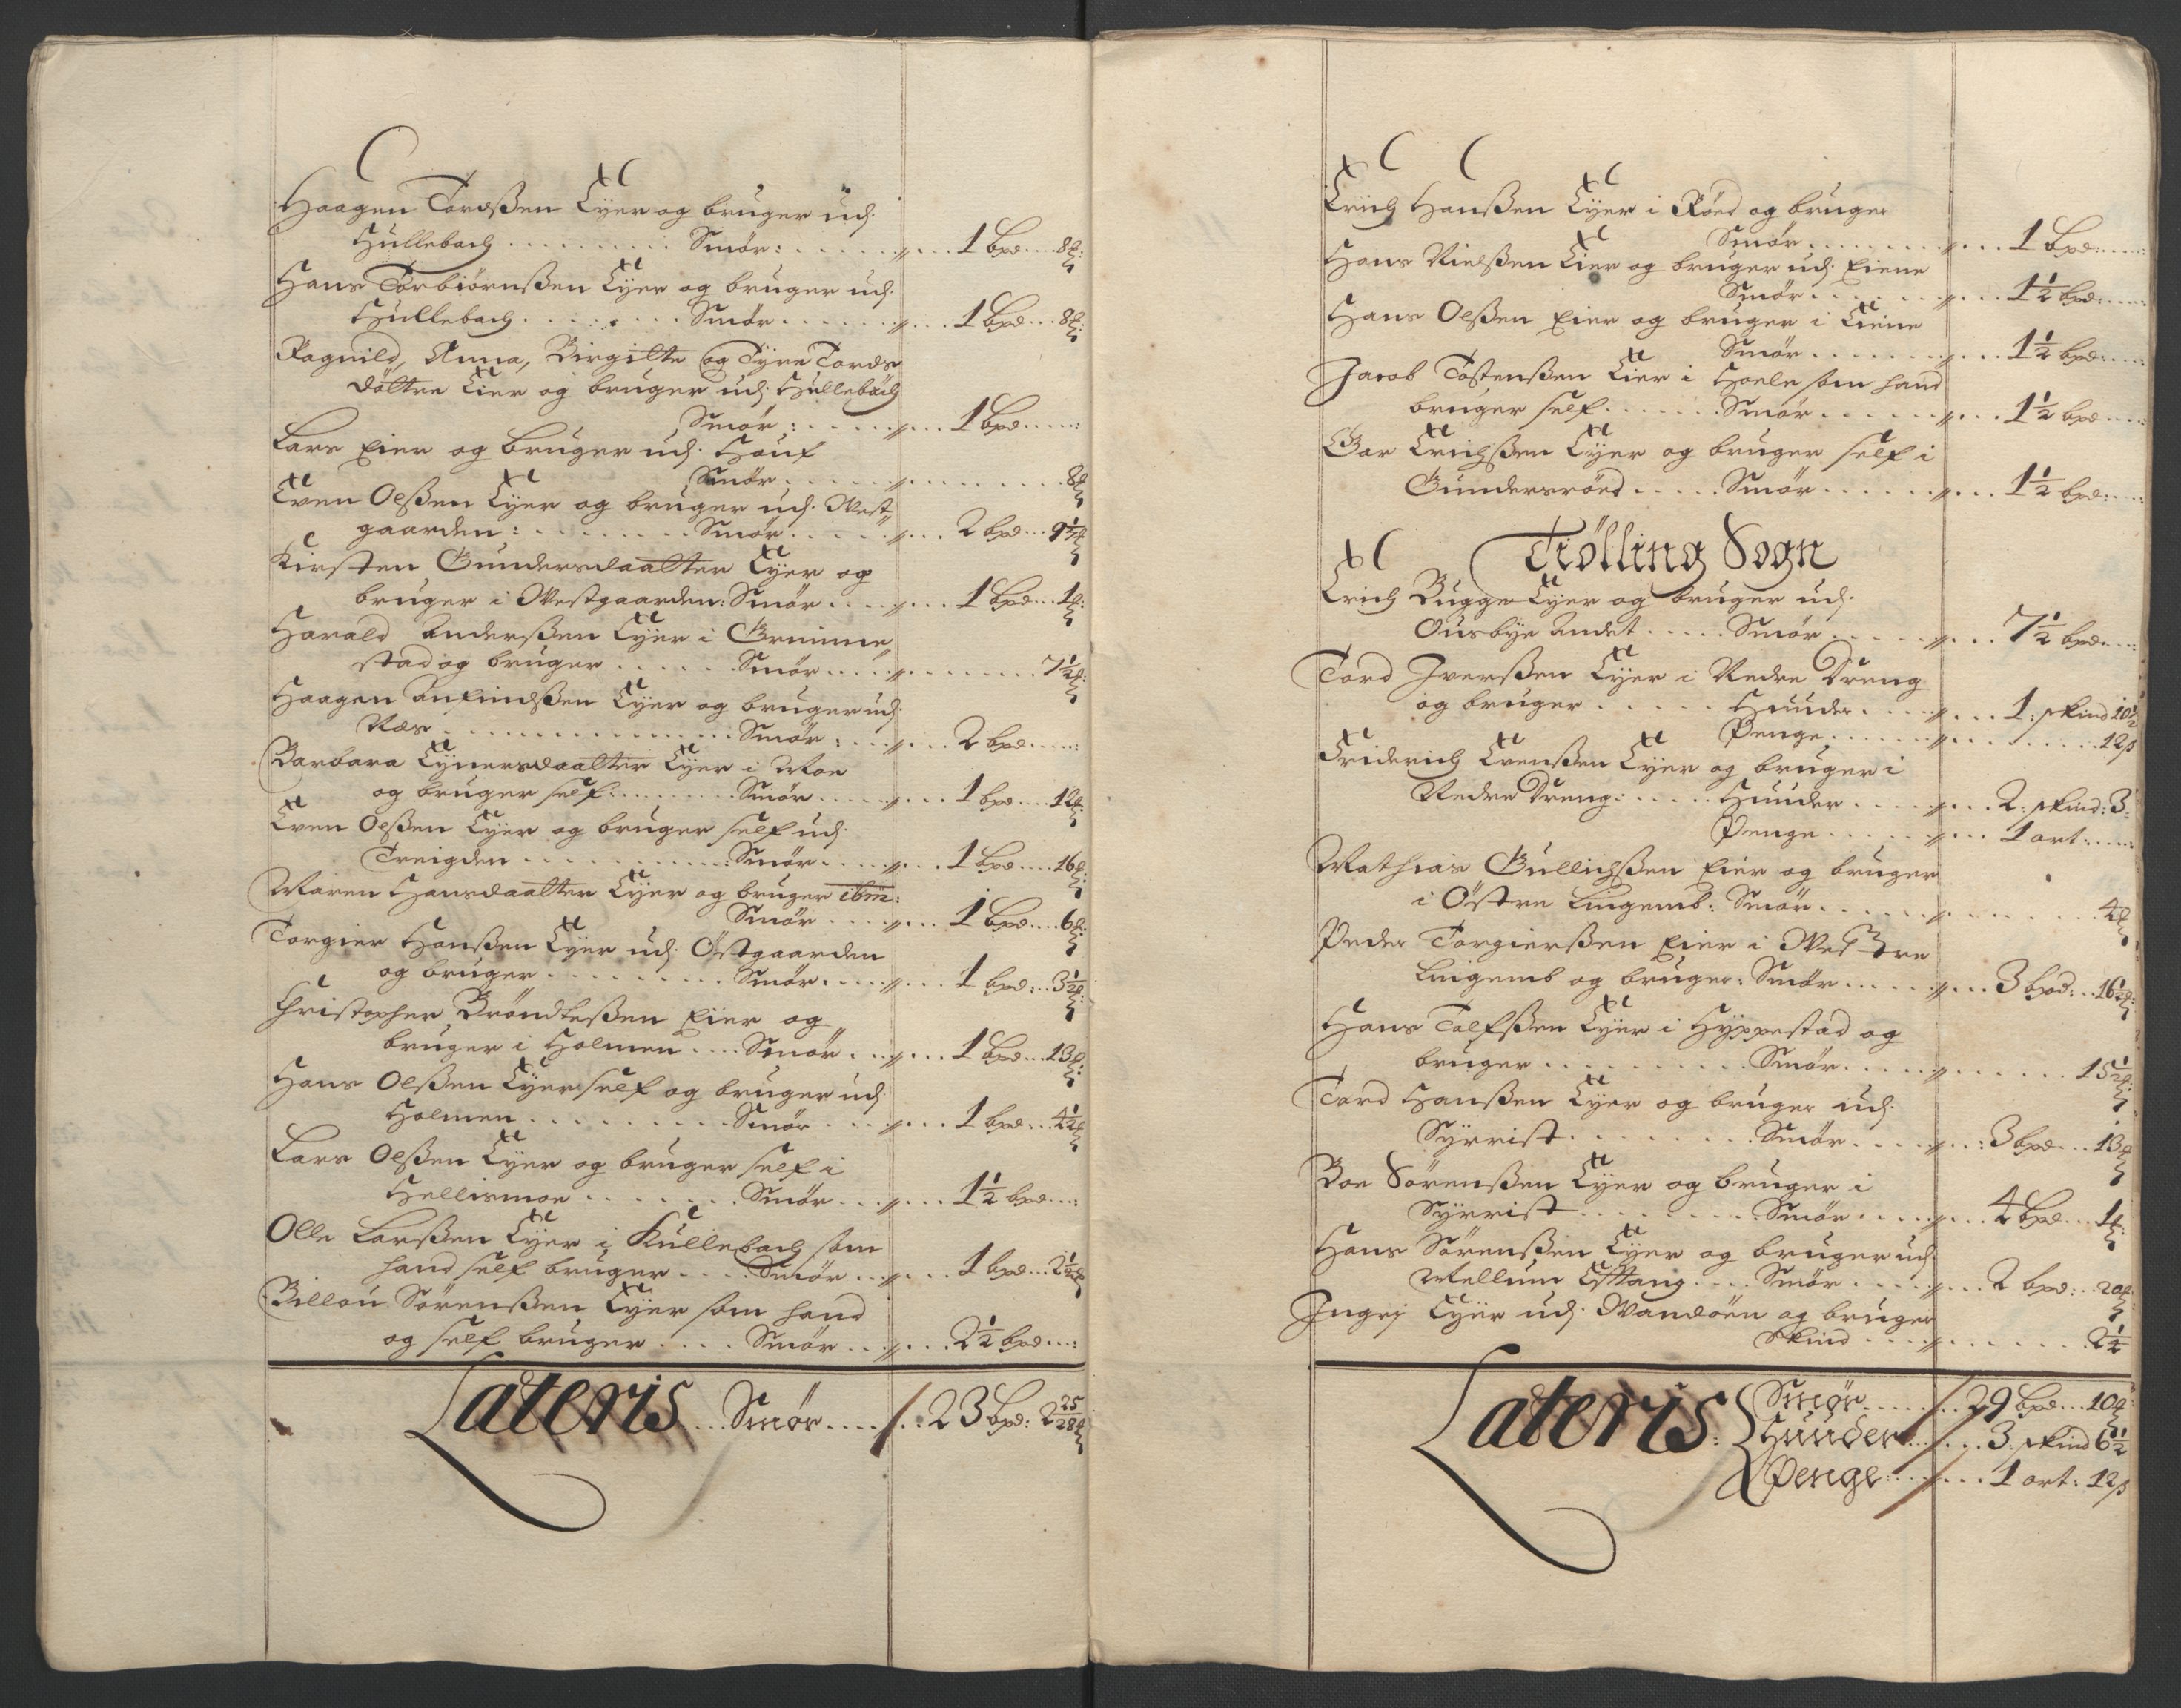 Haagen Tordßen Eyer og bruger udj.
Hullebach . . . . Smør: . . . . 1 bpd . . . 8 ℔:
Hans Torbiørnßen Eyer og bruger udj.
Hullebach . . . . Smør . . . . 1 bpd . . . 8 ℔:
Ragnild, Anna, Birgitte og Tyre Tords
døttre Eier og bruger udj Hullebach
Smør: . . . . 1 bpd . . . :
Lars Eier og bruger udj. Houf
Smør . . . . 8 ℔
Even Olßen Eyer og bruger udj. Vest„
gaarden: . . . . Smør . . . . 2 bpd . . . 9 ℔
Kirsten Gundersdaatter Eyer og
bruger i Westgaarden: Smør . . . . 1 bpd . . . 1 ℔:
Harald Anderßen Eyer i Grimme„
stad og bruger . . . . Smør . . . . 7½ ℔:
Haagen Anfindßen Eyer og bruger udj.
Næs . . . . Smør: . . . . 2 bpd . . . :
Barbara Eynersdaatter Eyer i Moe
og bruger self . . . . Smør . . . . 1 bpd . . . 12 ℔:
Even Olßen Eyer og bruger self udj.
Treigden . . . . Smør . . . . 1 bpd . . . 16 ℔:
Maren Hansdaatter Eyer og bruger ibm:
Smør . . . . 1 bpd . . . 6 ℔:
Torgier Hanßen Eyer udj. Østgaarden
og bruger . . . . Smør . . . . 1 bpd: . . 3½ ℔:
Christopher Brøndleßen Eier og
bruger i Holmen . . . . Smør . . . . 1 bpd . . . 13 ℔:
Hans Olßen Eyer self og bruger udj.
Holmen . . . . Smør . . . . 1 bpd . . . 4½ ℔
Lars Olßen Eyer og bruger self i
Hellismoe . . . . Smør . . . . 1½ bpd . . . :
Olle Larßen Eyer i Kullebach som
hand self bruger . . . . Smør . . . . 1 bpd . . . 2½ ℔
Billou Sørenßen Eyer som hand
og self bruger . . . . Smør . . . . 2½ bpd . . . :
Lateris . . . Smør . . . . 23 bpd: 2 25/28 ℔
Erich Hanßen Eyer i Røed og bruger
Smør . . . . 1 bpd: . . . :
Hans Nielßen Eier og bruger udj. Eiene
Smør . . . . 1½ bpd: . . . :
Hans Olßen Eier og bruger i Eiene
Smør . . . . 1½ bpd: . . . :
Jacob Tostenßen Eier i Hoele som hand
bruger self . . . . Smør . . . . 1½ bpd . . . :
Gar Erichßen Eyer og bruger self i
Gundersrøed . . . . Smør . . . . 1½ bpd: . . . :
Tiølling Sogn
Erich Bugge Eyer og bruger udj.
Ousbye Andet . . . . Smør . . . . 7½ bpd . . . :
Tord Iverßen Eyer i Nedre Dreng
og bruger . . . . Huuder . . . . 1: skind 10½
Penge . . . . 12 ß
Friderich Evenßen Eyer og bruger i
Nedre Dreng: . . . . Huuder . . . . 2: skind: 3:
Penge . . . . 1 ort: . . . :
Mathias Gullichßen Eier og bruger
i Østre Lingemb: Smør . . . . 4 ℔
Peder Torgierßen Eier i Vestre
Lingemb og bruger: Smør . . . . 3 bpd: . . 16½ ℔:
Hans Tolfßen Eyer i Hyppestad og
bruger . . . . Smør . . . . 15½ ℔:
Tord Hanßen Eyer og bruger udj.
Syrrist . . . . Smør . . . . 3 bpd . . . 13 ℔
Boe Sørenßen Eyer og bruger i
Syrrist . . . . Smør . . . . 4 bpd . . . 1 ℔:
Hans Sørenßen Eyer og bruger udj.
Mellum Esttang . . . . Smør . . . . 2 bpd: . . 20 ℔:
Ingrj Eyer udj. Wandøen og bruger
Skind . . . . 2½
Lateris: Smør . . . . 29 bpd . . . 10 ℔:
Huuder . . . . 3. skind 6½
Penge: . . . . 1 ort: 12 ß